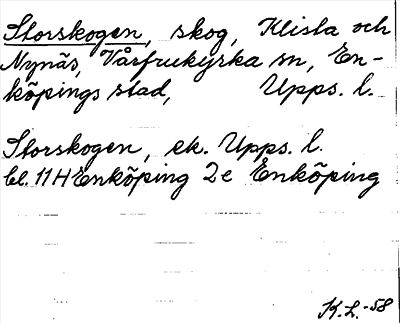 Storskogen, skog, Klista och
Nynäs, Vårfrukyrka sn, En-
köpings stad, Upps. l.
Storskogen, ek. Upps. l.
bl. 11H Enköping 2e Enköping
K.L.-58